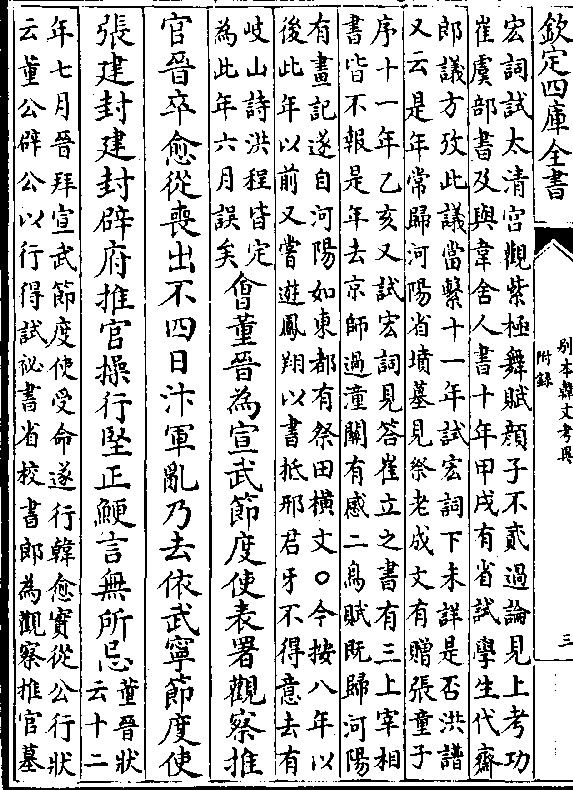 欽定四庫全書
別本韓文考異
附錄
三
宏詞試太清宮觀紫極舞賦顏子不貳過論見上考功
崔虞部書及與韋舍人書十年甲戌有省試學生代齋
郎議方攷此議當繫十一年試宏詞下未詳是否洪譜
又云是年常歸河陽省墳墓見祭老成文有贈張童子
序十一年乙亥又試宏詞見答崔立之書有三上宰相
書皆不報是年去京師過潼關有感二鳥賦既歸河陽
有畫記遂自河陽如東都有祭田橫文○今按八年以
後此年以前又嘗遊鳳翔以書抵邢君牙不得意去有
岐山詩洪程皆定
為此年六月誤矣
會董晉為宣武節度使表署觀察推
官晉卒愈從喪出不四日汴軍亂乃去依武寧節度使
張建封建封辟府推官操行堅正鯁言無所忌
董晉狀
云十二
年七月晉拜宣武節度使受命遂行韓愈實從公行狀
云董公辟公以行得試祕書省校書郎為觀察推官墓